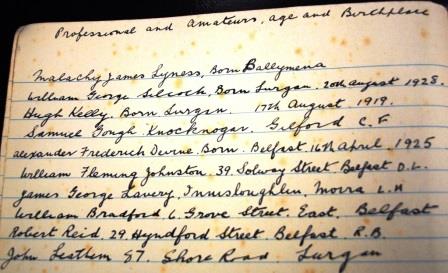 Professional and Amateurs, age and Birthplace
Malachy James Lyness, Born Ballymena
William George Silcock, Born Lurgan. 20th august 1925.
Hugh Kelly, Born Lurgan. 17th August 1919.
Samuel Gough. Knocknogar. Gilford C.F
Alexander Frederich Devine. Born. Belfast 16th April. 1925
William Fleming Johnston. 39. Solway Street. Belfast D.L.
James George Lavery. Innisloughlin, Morra L.H
William Bradford 6. Grove Street. East. Belfast
Robert Reid. 29. Hyndford Street Belfast R.B.
John Leathem 57. Shore Road Lurgan